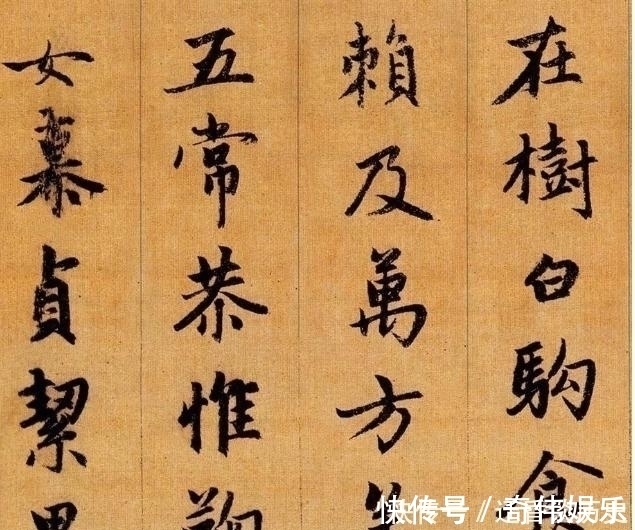 在樹白駒食
賴及萬方
五常恭惟鞠
女慕貞絜男
快传号／奇伟娱乐